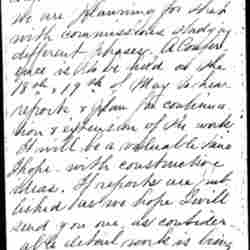 we are planning for that
with commissions studying
different phases. A Confer
ence is to be held on the
18th, 19th of May to hear
reports & plan the continua
tion & extension of the work
It will be a valuable time
I hope. with constructive
ideas. If reports are
as we hope I will
send you one, as consider
able detail work is